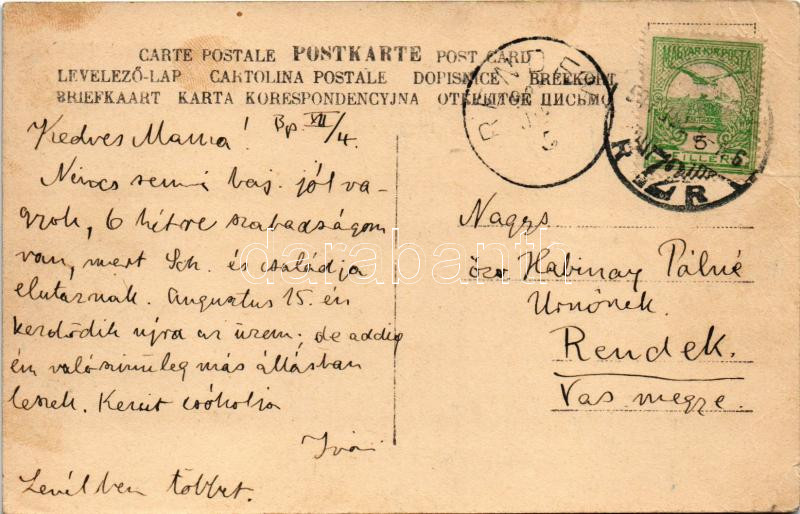 CARTE POSTALE POSTKARTE POST CARD
LEVELEZŐ-LAP CARTOLINA POSTALE DOPISNICE BREFKORT
BRIEFKAART KARTA KORESPONDENCYJNA ОТКРЫТОЕ ПИСЬМО
MAGYAR KIR. POSTA
5
FILLÉR
Kedves Mama! Bp. VII/4.
Nincs semmi baj. jól va-
gyok, 6 hétre szabadságom
van, mert Sch. és családja
elutaznak. Augusztus 15.-én
kezdődik újra az üzem, de addig
én valószinüleg más állásban
leszek. Kezeit csókolja
Iván
Levélben többet.
Nagys
özv Habinay Pálné
Urnőnek.
Rendek.
Vas megye.
darabanth.com